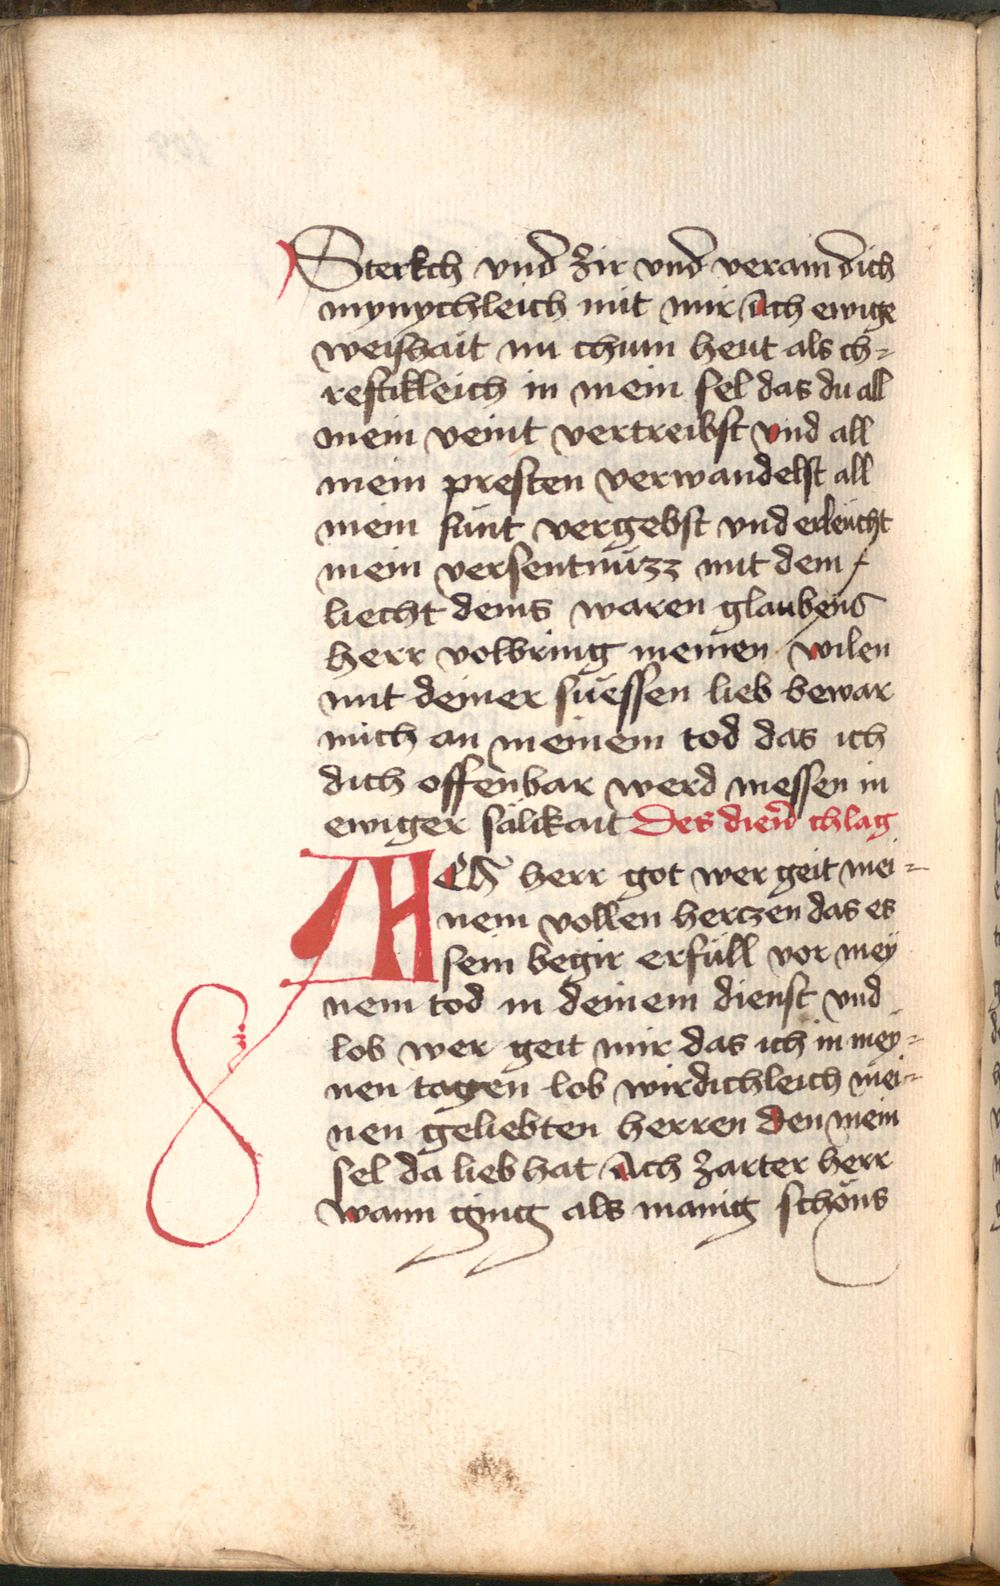 Sterkch vnd zir vnd verain dich
mynychleich mit mir Ach ewige
weishait nu chum heut als ch-
restikleich in mein sel das du all
mein veint vertreibst vnd all
mein presten verwandelst all
mein sünt vergebst vnd erleücht
mein versentnüzz mit dem
liecht deins waren glaubens
herr volbring meinen wilen
mit deiner süessen lieb bewar
mich an meinem tod das ich
dich offenbar werd niessen in
ewiger sälikait Des dien̄ chlag
ACh herr got wer geit mei-
nem vollen herczen das es
sein begir erfüll vor mey
nem tod in deinem dienst vnd
lob wer geit mir das ich in mey-
nen tagen lob wirdichleich mei-
nen geliebten herren den mein
sel da lieb hat Ach zarter herr
wann ging als manig schöns